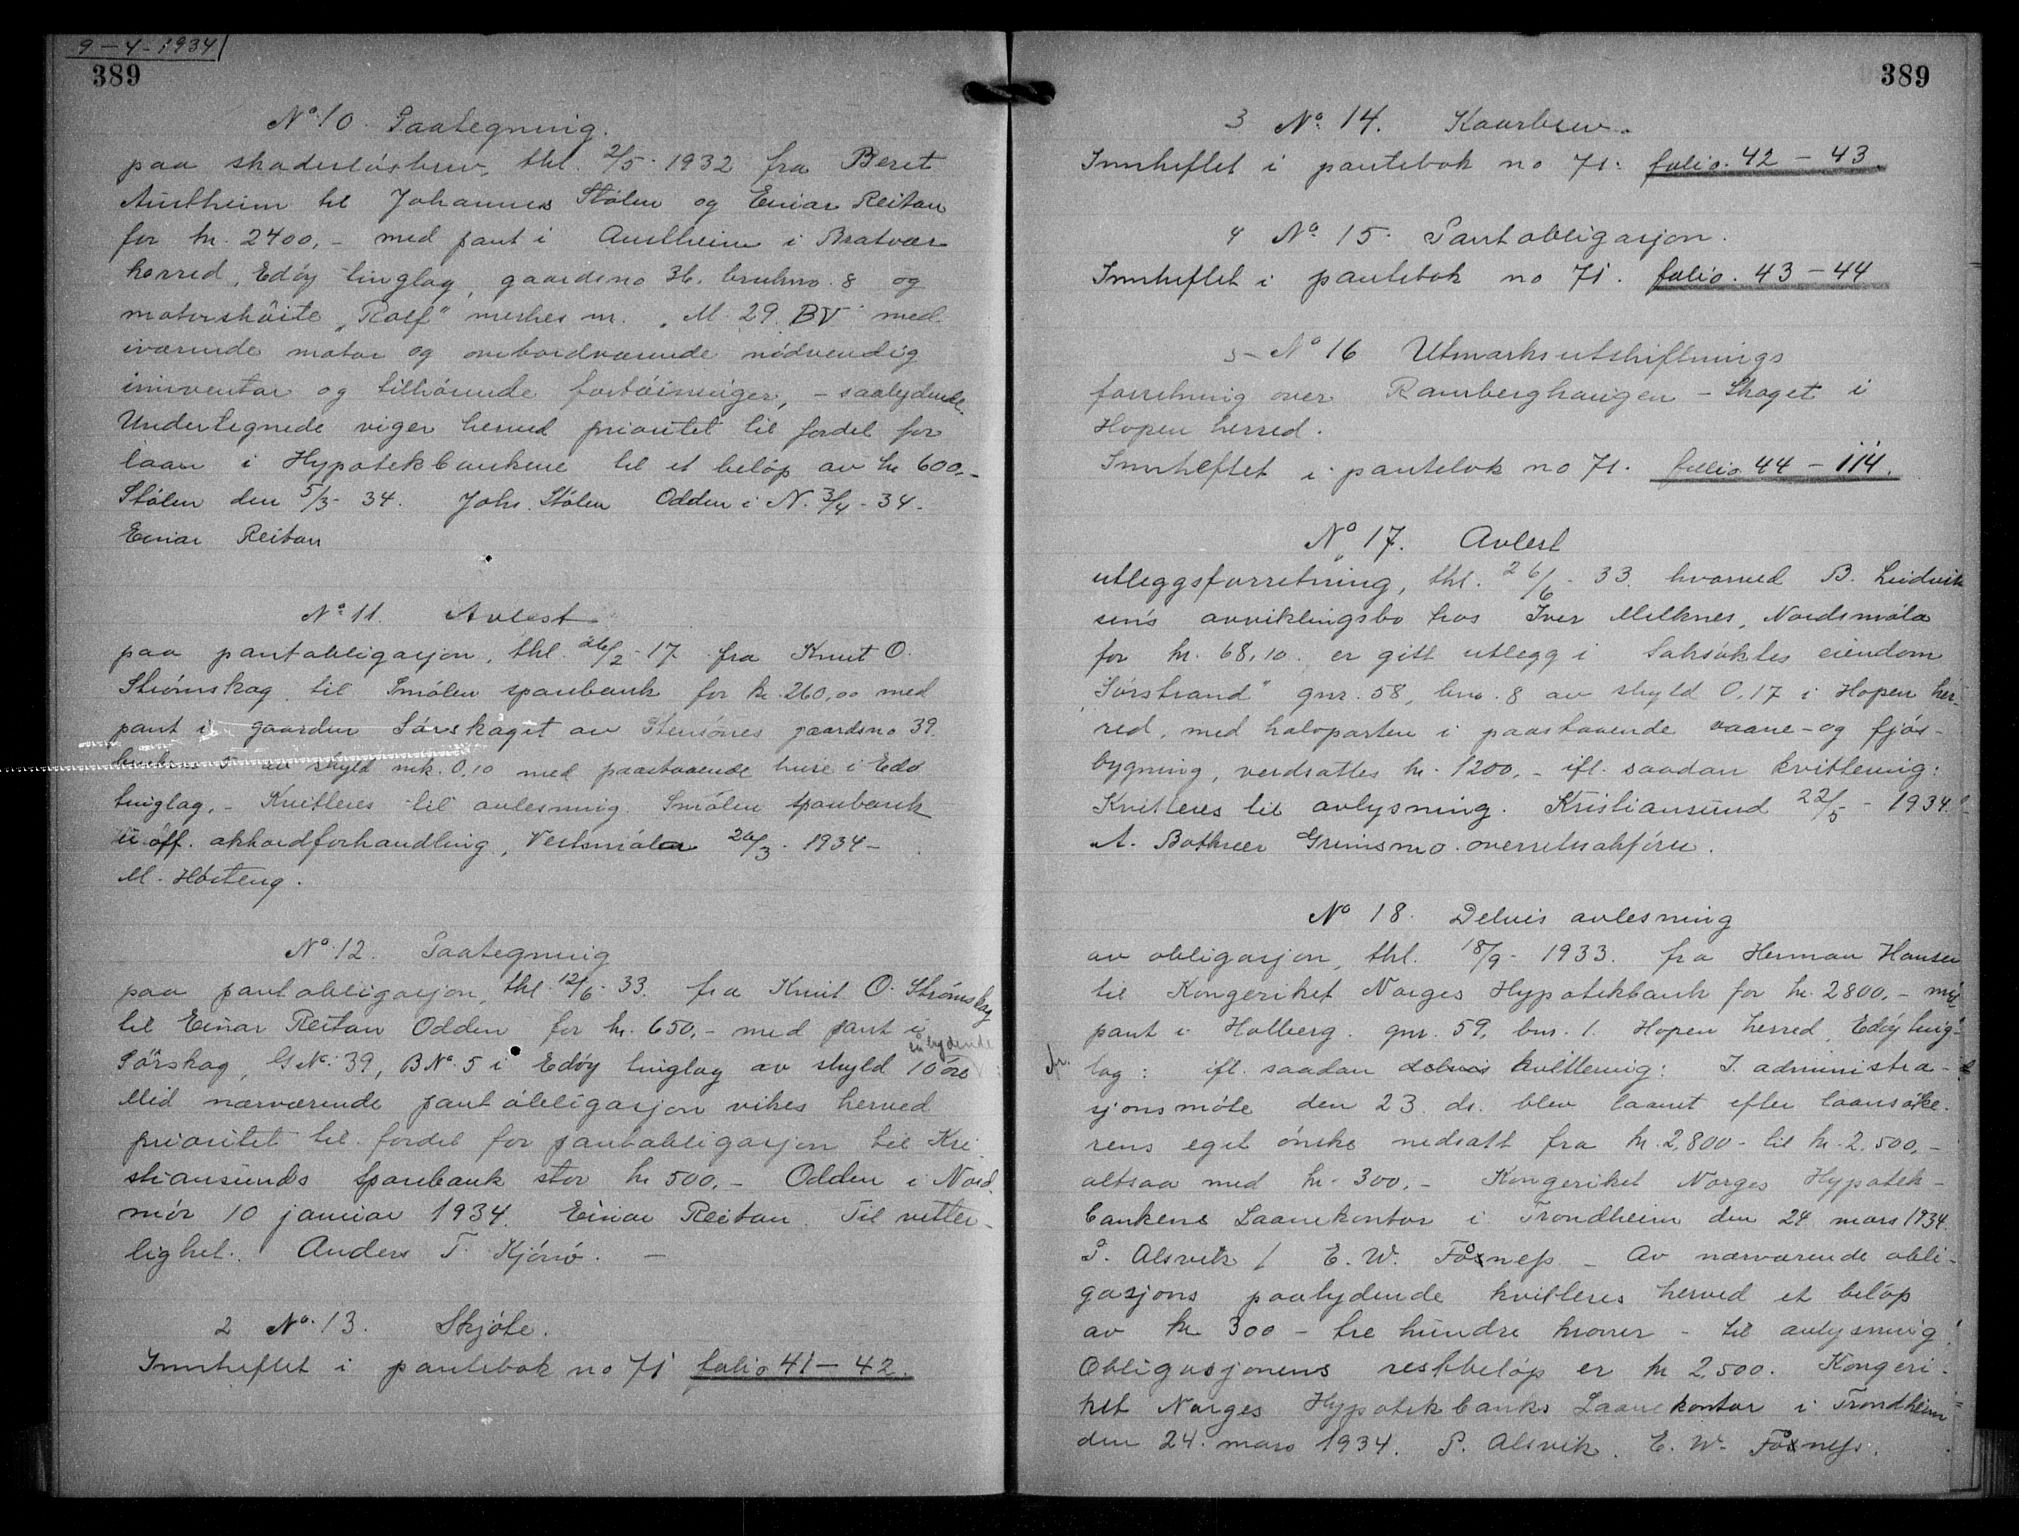 9-4-1934
389
No. 10. Paategning.
paa skadesløsbrev, thl. 2/5-1932 fra Beret
Austheim til Johannes Stølen og Einar Reitan
for kr. 2400,- med pant i Austheim i Bratvær
herred, Edøy tinglag, gaardsno 36, bruksno. 8 og
motorskøite "Rolf" merket m. "M. 29. BV" med
iværende motor og ombordværende nødvendig
innventar og tilhørende fortøininger, - saalydende:
Undertegnede viger herved prioritet til fordel for
laan i Hypotekbankene til et beløp av kr 600,-
Stølen den 5/3-34. Johs. Stølen Odden i N. 3/4-34.
Einar Reitan
No. 11. Avlest
paa pantobligasjon, thl. 26/2-17 fra Knut O.
Strømskag til Smølen sparebank for kr. 260,00 med
pant i gaarden Sørskaget av Stensønes gaardsno 39.
bruksno 5 av skyld mk. 0,10 med paastaaende huse i Edø
tinglag. - Kvitteres til avlesning. Smølen sparebank
u. off. akkordforhandling, Vestsmøla 26/3-1934 -
M. Høsteng.
No. 12. Paategning
paa pantobligasjon, thl. 12/6-33. fra Knut O. Strømskag
til Einar Reitan Odden for kr. 650,- med pant i
Sørskag, G.No. 39, B.No. 5 i Edøy tinglag av skyld 10 øre
sålydende:
Med nærværende pantobligasjon vikes herved
prioritet til fordel for pantobligasjon til Kri
stiansunds sparebank stor kr 500,- Odden i Nord-
mør 10 januar 1934. Einar Reitan. Til vitter-
lighet. Anders T. Kjønø. -
2 No. 13. Skjøte.
Innheftet i pantebok no 71 folio 41-42.
389
3 No. 14. Kaarbrev.
Innheftet i pantebok no 71. folio. 42-43.
4 No. 15. Pantobligasjon.
Innheftet i pantebok no 71. folio. 43-44
5- No 16 Utmarksutskiftnings
forretning over Ramberghaugen - Skaget i
Hopen herred.
Innheftet i pantebok no 71. folio 44-114.
No. 17. Avlest
utleggsforretning, thl. 26/6-33. hvorved B. Ludvik
sens avviklingsbo hos Iver Melknes, Nordsmøla
for kr. 68,10. er gitt utlegg i Saksøktes eiendom
"Sørstrand" gnr. 58, bno. 8 av skyld 0,17 i Hopen her-
red, med halvparten i paastaaende vaane- og fjøs-
bygning, verdsattes kr. 1200,- ifl. saadan kvittering:
Kvitteres til avlysning. Kristiansund 22/5-1934.
A. Bothner Grimsmo. overretssakfører.
No 18. Delvis avlesning
av obligasjon, thl. 18/9-1933. fra Herman Hansen
til Kongeriket Norges Hypotekbank for kr. 2800,- m/
pant i Holberg. gnr. 59, bnr. 1. Hopen herred, Edøy ting-
lag: ifl. saadan delvis kvittering: I administra-
sjonsmøte den 23. ds. blev laanet efter laansøke-
rens eget ønske nedsatt fra kr. 2,800- til kr. 2,500,-
altsaa med kr. 300,- Kongeriket Norges Hypotek-
bankens Laanekontor i Trondheim den 24 mars 1934.
P. Alsvik / E. W. Fosness - Av nærværende obli-
gasjons paalydende kvitteres herved et beløp
av kr 300 - tre hundre kroner - til avlysning.
Obligasjonens restbeløp er kr 2,500. Kongeri-
ket Norges Hypotekbanks Laanekontor i Trondheim
den 24. mars 1934. P. Alsvik. E. W. Fosness.